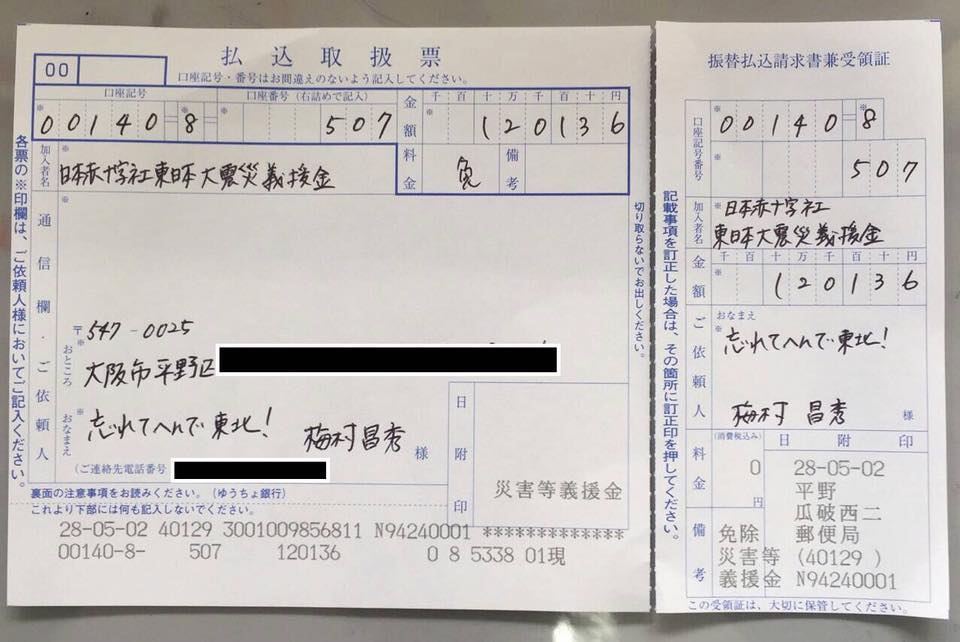 払込取扱票
00
口座記号・番号はお間違えのないよう記入してください。
口座記号
口座番号(右詰めで記入)
金額
千百十万千百十円
※
00140-8-
※
507
※
120136
加入者名
※
日本赤十字社東日本大震災義援金
料金
免
備考
各票の※印欄は、ご依頼人様においてご記入ください。
通信欄・ご依頼人
※
切り取らないでお出しください。
〒547-0025
おところ
※
大阪市平野区
おなまえ
※
忘れてへんで東北!
梅村昌秀
様
(ご連絡先電話番号
日附印
災害等義援金
裏面の注意事項をお読みください。(ゆうちょ銀行)
これより下部には何も記入しないでください。
28-05-02 40129 3001009856811 N94240001 *************
00140-8- 507 120136 0 8 5338 01現
振替払込請求書兼受領証
口座記号番号
※
00140-8
※
507
加入者名
※
日本赤十字社
東日本大震災義援金
金額
千百十万千百十円
※
120136
記載事項を訂正した場合は、その箇所に訂正印を押してください。
ご依頼人
おなまえ
※
忘れてへんで東北!
梅村 昌秀
様
料金
(消費税込み)
0
円
日附印
28-05-02
平野
瓜破西二
郵便局
(40129 )
N94240001
備考
免除
災害等
義援金
この受領証は、大切に保管してください。